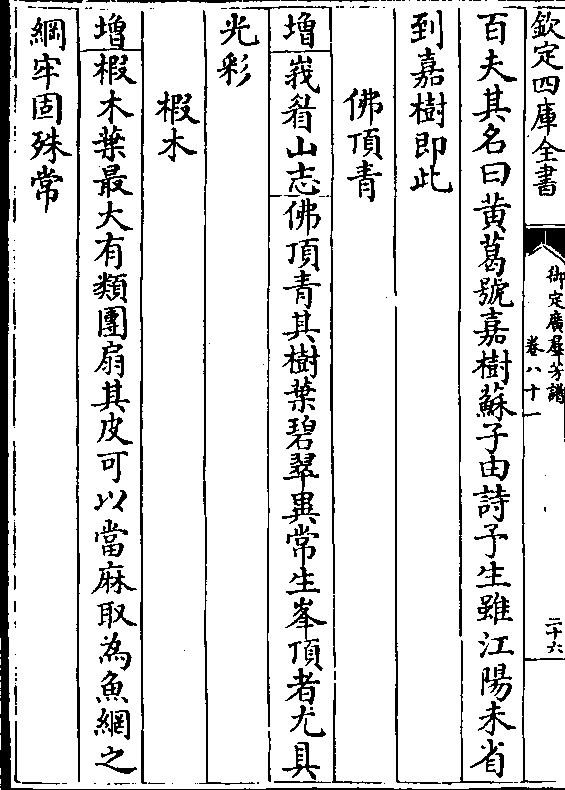 欽定四庫全書
御定廣羣芳譜
卷八十一
二十六
百夫其名曰黄葛號嘉樹蘇子由詩予生雖江陽未省
到嘉樹即此
佛頂青
增峩眉山志佛頂青其樹葉碧翠異常生峯頂者尤具
光彩
椵木
增椵木葉最大有類團扇其皮可以當麻取為魚網之
綱牢固殊常